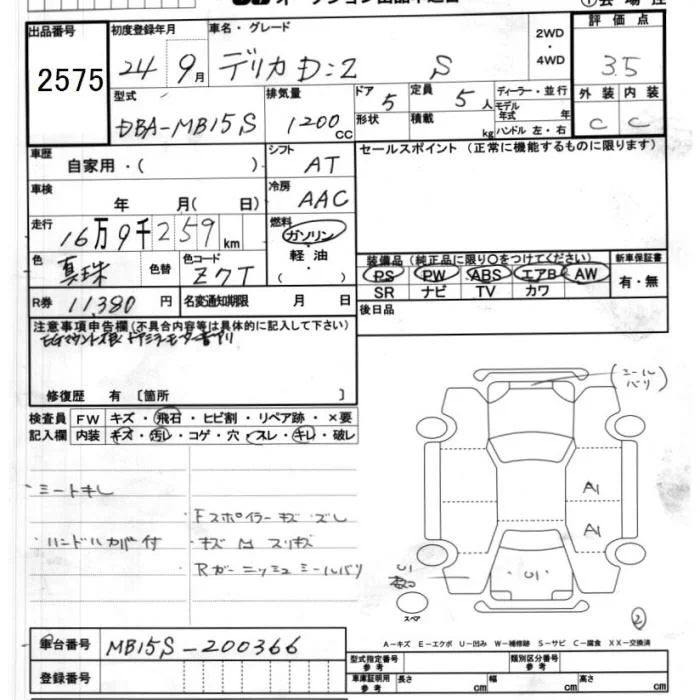 出品番号 初度登録年月 車名・グレード 2WD ・ 4WD 評価点
2575 24 9月 デリカD:2 S 3.5
型式 排気量 ドア 定員 ディーラー・並行 外装 内装
モデル年式 年
DBA-MB15S 1200cc 5 5人 C C
形状 積載 kg ハンドル 左・右
車歴 自家用・( ) シフト AT セールスポイント (正常に機能するものに限ります)
車検 年 月( 日) 冷房 AAC
走行 16万9千259km 燃料 ガソリン
色 真珠 色替 色コード Z7T 軽油 ・ ( )
装備品 (純正品に限り○をつけてください) 新車保証書
PS PW ABS エアB AW 有・無
SR ナビ TV カワ
R券 11,380円 名変通知期限 月 日 後日品
注意事項申告欄(不具合内容等は具体的に記入して下さい)
EGマウント不良 ドアミラーモーター音アリ
修復歴 有 [箇所 ]
検査員 FW キズ・飛石・ヒビ割・リペア跡・×要
記入欄 内装 キズ・汚レ・コゲ・穴・スレ・キレ・破レ
(シールバリ)
A1
・シートキレ A1
・Fスポイラーキズ ズレ
・ハンドルカバー付 ・キズ M スリキズ
・Rガーニッシュ シールバリ U1
U1
スペア
②
車台番号 MB15S-200366
A－キズ E－エクボ U－凹み W－補修跡 S－サビ C－腐食 XX－交換済
登録番号
型式指定番号 参考 類別区分番号 参考
車庫証明用 参考 長さ cm 幅 cm 高さ cm